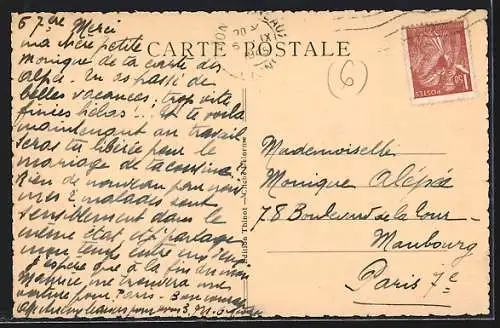 6 7bre Merci
ma chère petite
Monique de ta carte des
Alpes. Tu as passé de
belles vacances, trop vite
finies hélas ! .. Et te voilà
maintenant au travail
seras tu libérée pour le
mariage de ta cousine.
Rien de nouveau pour moi
mes 2 malades sont
sensiblement dans le
même état et je partage
mon temps entre eux deux
J'espère que à la fin du mois
Maurice me trouvera une
voiture pour Paris. Bon
CARTE POSTALE
6
1F50
POSTES
Edition Thinot - Cliché Delorme
Mademoiselle
Monique Alépée
78 Boulevard de la Tour-
Maubourg
Paris 7e